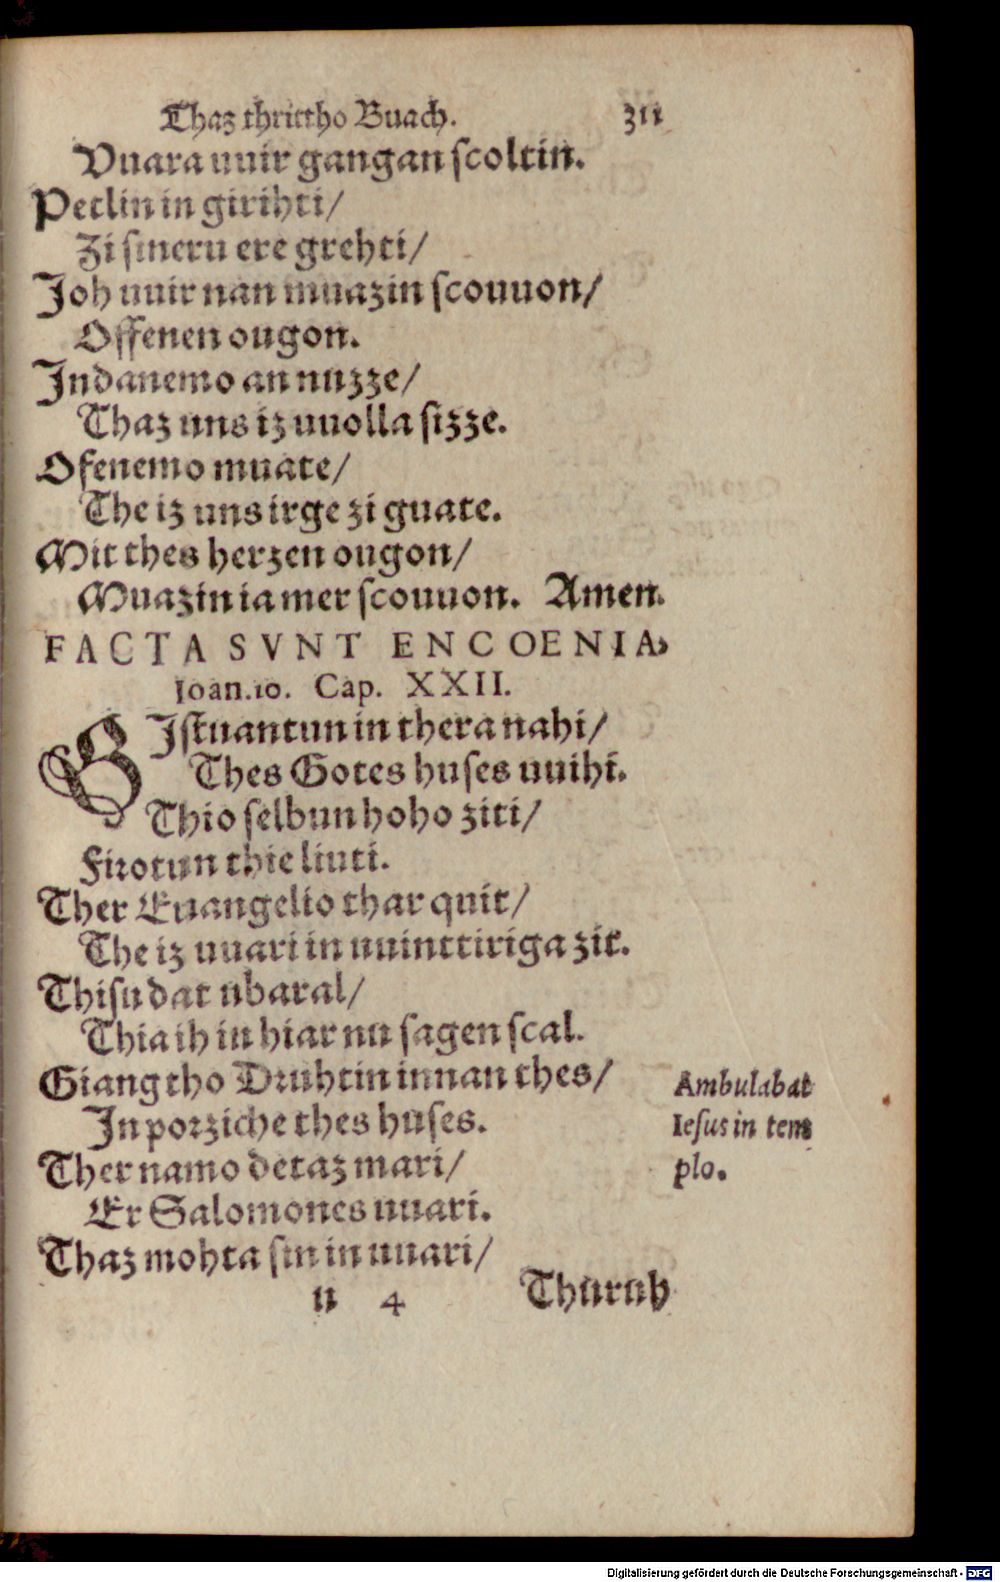 Thaz thrittho Buach. 311
Vuara uuir gangan scoltin.
Petlin in girihti/
Zi sineru ere grehti/
Joh uuir nan muazin scouuon/
Offenen ougon.
Indanemo an nuzze/
Thaz uns iz uuolla sizze.
Ofenemo muate/
The iz uns irge zi guate.
Mit thes herzen ougon/
Muazin ia mer scouuon. Amen.
FACTA SVNT ENCOENIA,
Ioan.10. Cap. XXII.
GIstuantun in thera nahi/
Thes Gotes huses uuihi.
Thio selbun hoho ziti/
Firotun thie liuti.
Ther Euangelio thar quit/
The iz uuari in uuinttiriga zit.
Thisu dat ubaral/
Thia ih iu hiar nu sagen scal.
Giang tho Druhtin innan thes/
In porziche thes huses.
Ther namo detaz mari/
Er Salomones uuari.
Thaz mohta sin in uuari/
u 4 Thuruh
Ambulabat
Iesus in tem
plo.
Digitalisierung gefördert durch die Deutsche Forschungsgemeinschaft - DFG